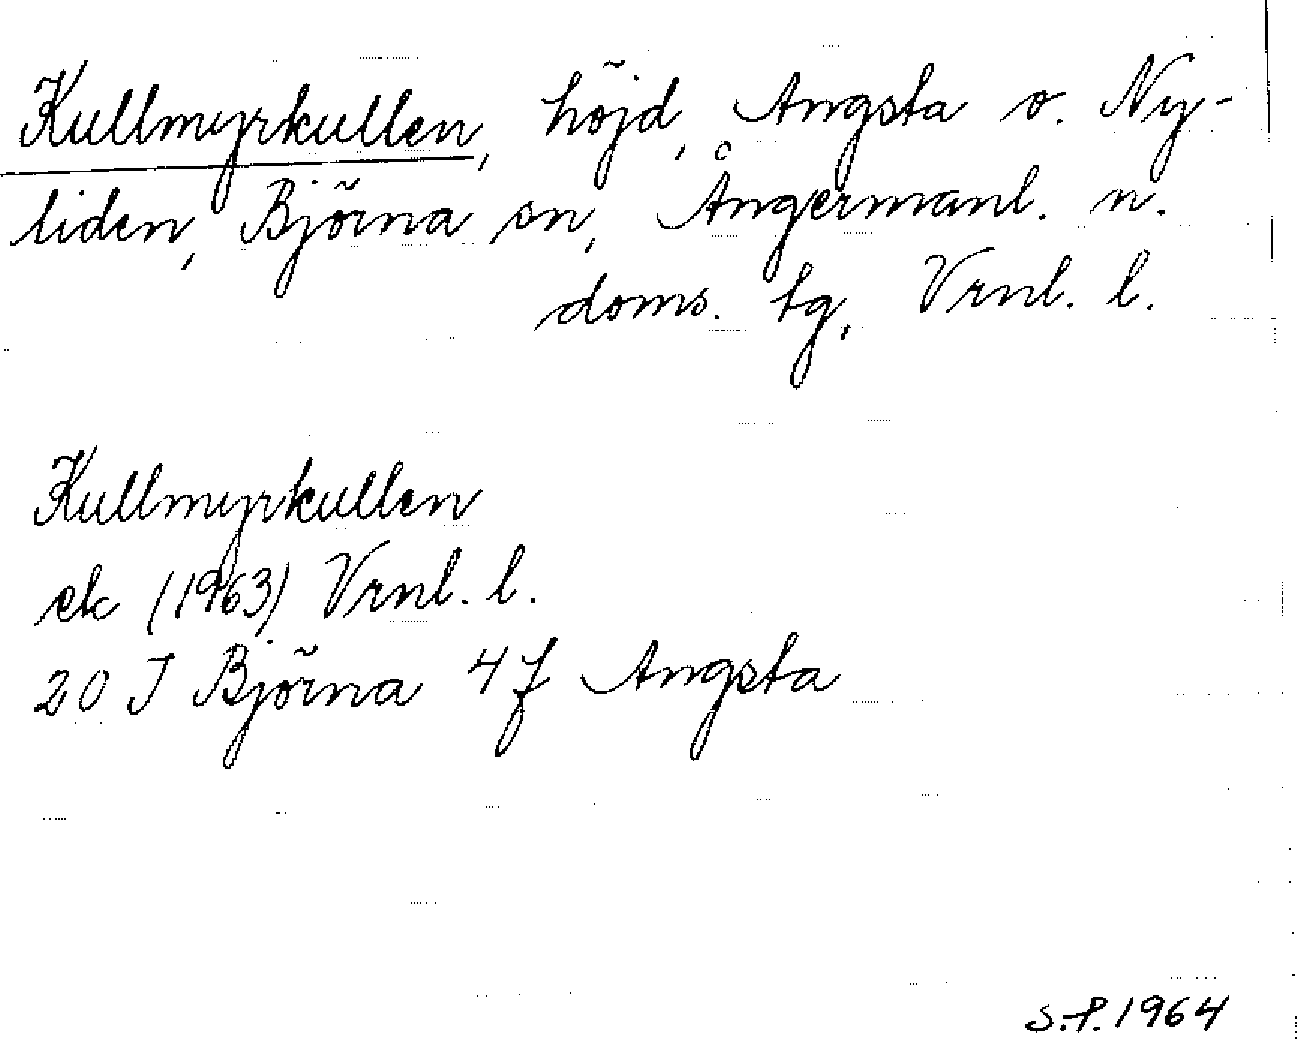 Kullmyrkullen, höjd, Angsta o. Ny-
liden, Björna sn, Ångermanl. n.
doms. tg, Vrnl. l.
Kullmyrkullen
ek (1963) Vrnl. l.
20 J Björna 4f Angsta
S.P. 1964